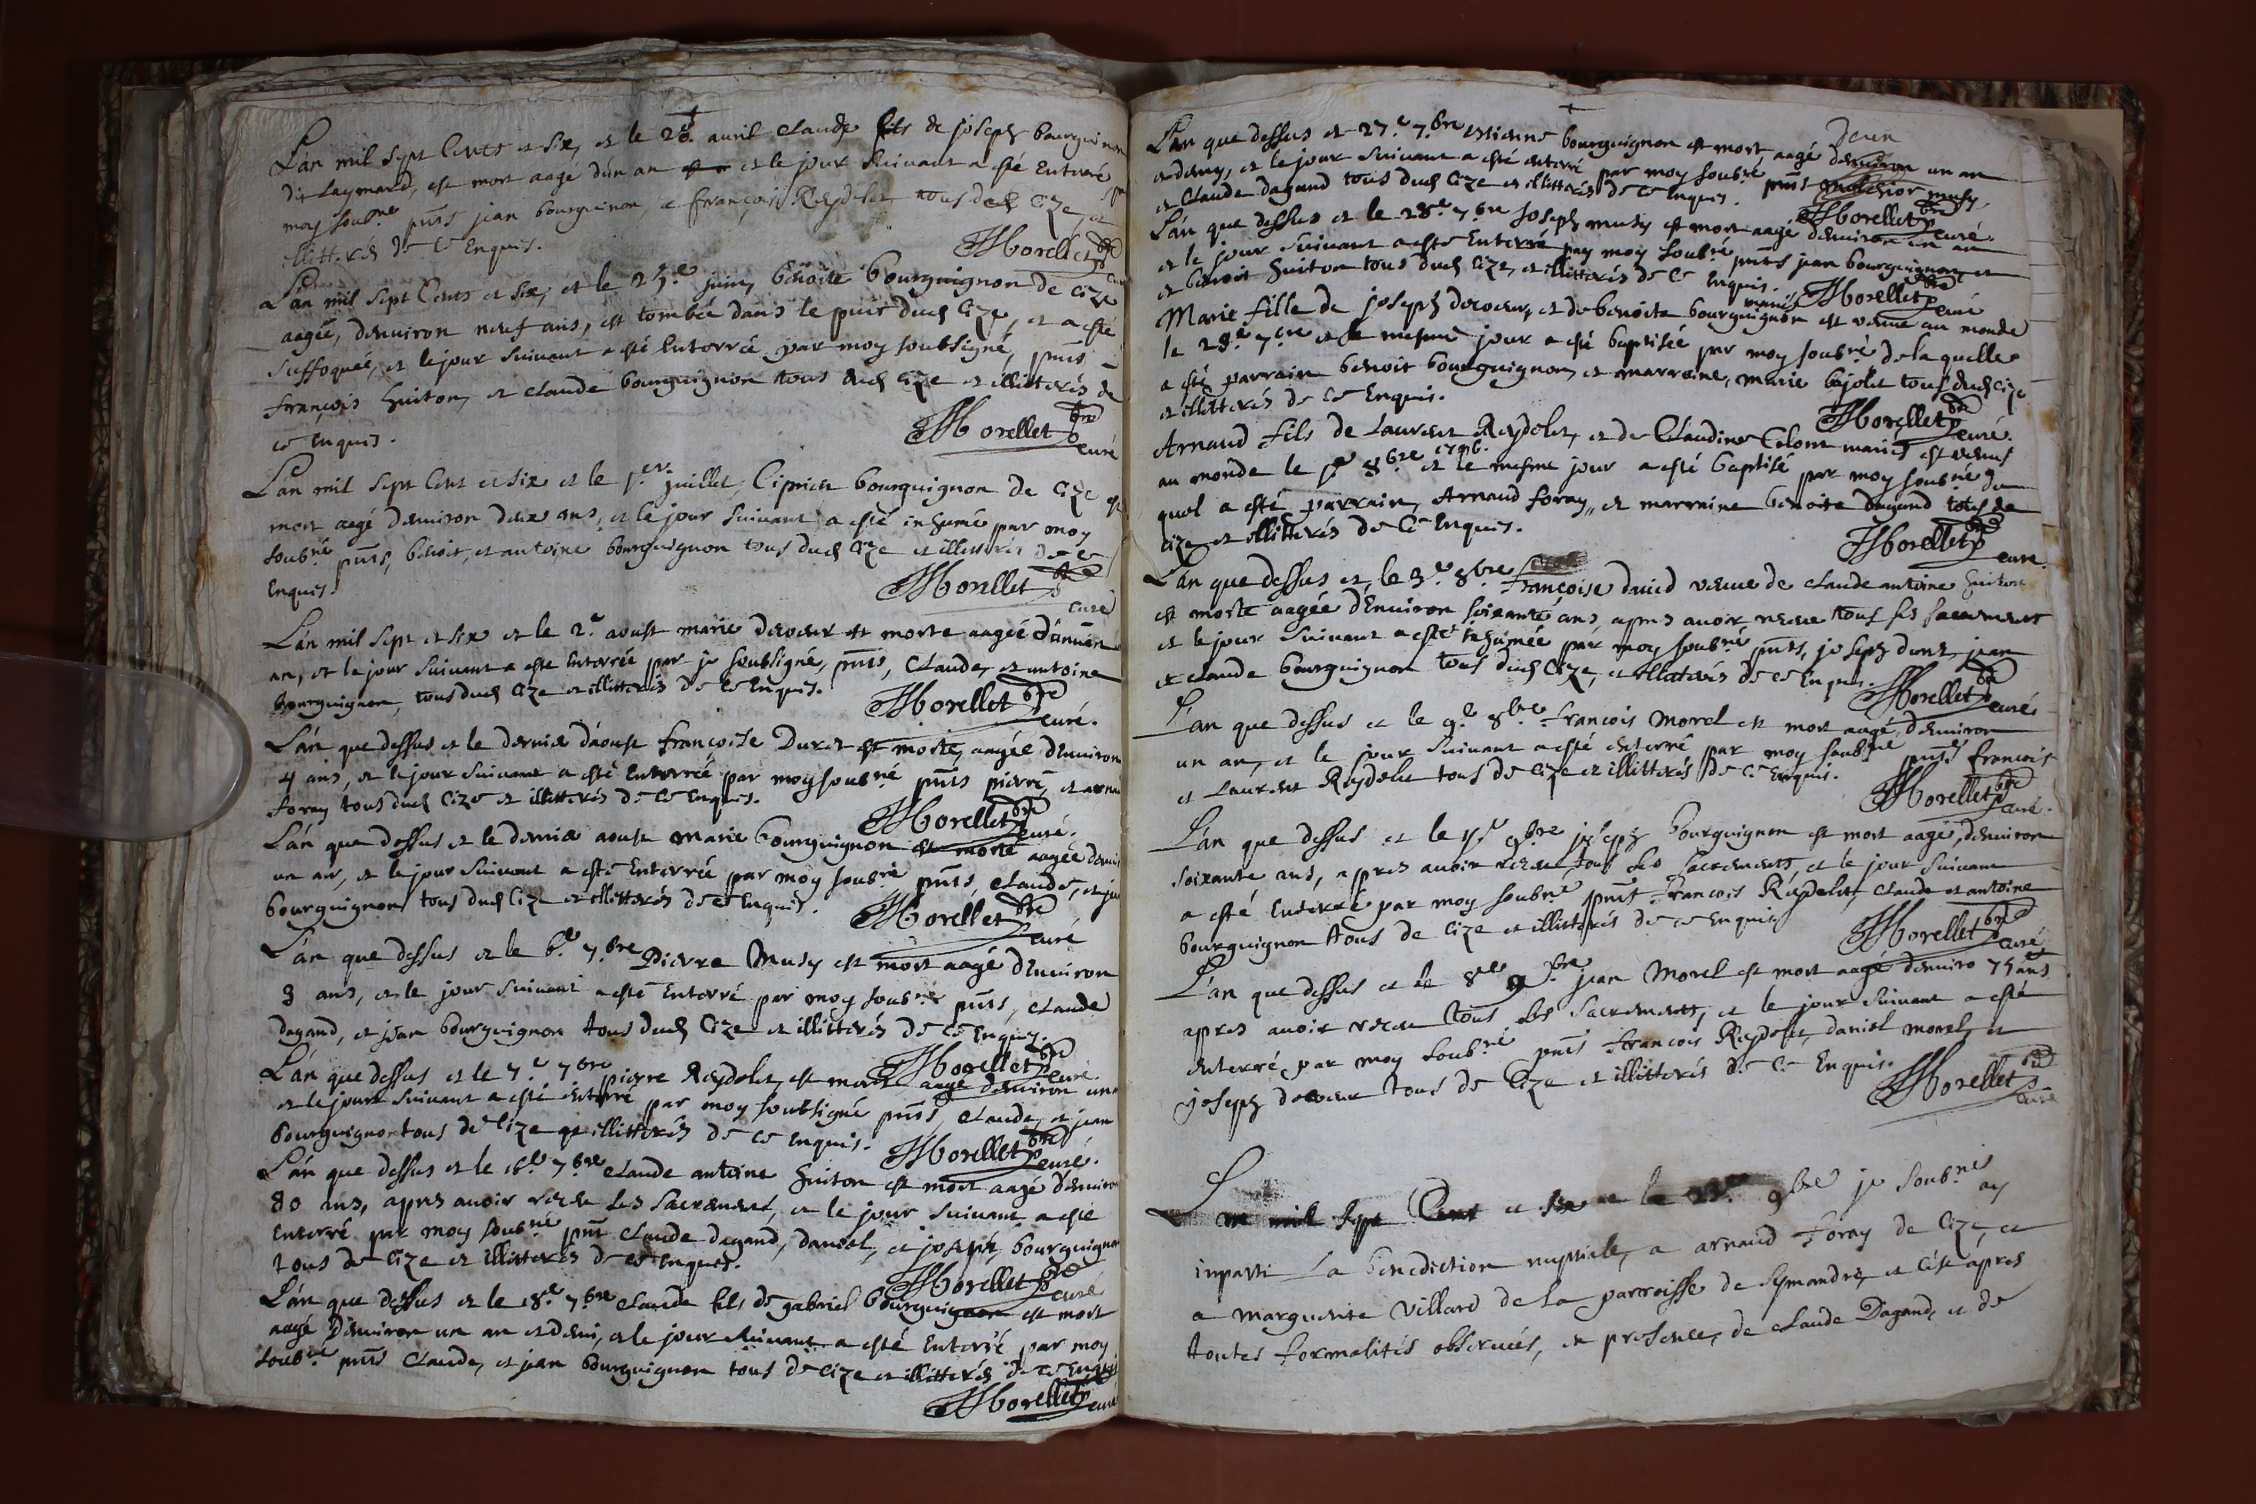 L'an mil sept Cents et six, et le 28.e auril claude fils de joseph bourguinon
dit Laymard, est mort aagé d'un an et le jour suiuant a esté Enterré
moy soub.né pnts jean bourguinon, et françois Reydelet tous dud. Cize, et
illitterés de ce Enquis.
Morellet pbre curé
L'an mil sept Cents et six, et le 25.e juin, benoite bourguignon de Cize
aagée, denuiron neuf ans, est tombée dans le puis dud. Cize, et a esté
suffoquée, et le jour suiuant a esté Enterrée par moy soubsigné, pnts
françois huiton, et claude bourguignon tous dud. Cize et illitterés de
ce Enquis.
Morellet pbre curé
L'an mil sept Cent et six et le 1.er juillet, Ciprien bourguignon de Cize est
mort aagé denuiron deux ans, et le jour suiuant a esté inhumé par moy
soub.né pnts, benoit, et antoine bourguignon tous dud. Cize et illitterés de ce
Enquis.
Morellet pbre curé
L'an mil sept et six et le 2.e aoust marie decoeur est morte aagée d'enuiron
an, et le jour suiuant a esté Enterrée par je soubsigné, pnts, Claude, et antoine
bourguignon, tous dud. Cize et illitterés de ce Enquis.
Morellet pbre curé.
L'an que dessus et le dernier d'aoust françoise Duret est morte, aagée denuiron
4 ans, et le jour suiuant a esté Enterrée par moy soub.né pnts pierre, et arnau
foray tous dud. Cize et illitterés de ce Enquis.
Morellet pbre curé.
L'an que dessus et le dernier aoust marie bourguignon est morte aagée denui
un an, et le jour suiuant a esté Enterrée par moy soub.né pnts, claude, et jean
bourguignon tous dud. Cize et illitterés de ce Enquis.
Morellet pbre curé
L'an que dessus et le 6.e 7.bre Pierre Musy est mort aagé d'Enuiron
3 ans, et le jour suiuant a esté Enterré par moy soub.né pnts, claude
dagand, et jean bourguignon tous dud. Cize et illitterés de ce Enquis.
Morellet pbre curé.
L'an que dessus et le 7.e 7bre pierre Reydelet, est mort aagé denuiron un
et le jour suiuant a esté enterré par moy soubsigné pnts, claude, et jean
bourguignon tous de Cize et illitterés de ce Enquis.
Morellet pbre curé.
L'an que dessus et le 16.e 7bre claude antoine huiton est mort aagé d'enuiron
80 ans, apres auoir receu les sacrements, et le jour suiuant a esté
Enterré par moy soub.né pnts claude dagand, daniel, et joseph bourguignon
tous de Cize et illitterés de ce Enquis.
Morellet pbre curé
L'an que dessus et le 18.e 7bre claude fils de gabriel bourguignon est mort
aagé D'enuiron un an et demi, et le jour suiuant a esté Enterré par moy
soub.né pnts Claude, et jean bourguignon tous de Cize et illitterés de ce Enquis
Morellet pbre curé
L'an que dessus et 27.e 7.bre estienne bourguignon est mort aagé d'un an
et demy, et le jour suiuant a esté enterré par moy soub.né pnts melchior musy
et Claude dagand tous dud. Cize et illitterés de ce Enquis.
Morellet pbre curé.
L'an que dessus et le 28.e 7bre joseph musy est mort aagé denuiron un an
et le jour suiuant a esté Enterré par moy soub.né pnts jean bourguignon, et
et benoit huiton tous dud. Cize, et illitterés de ce Enquis.
Morellet pbre curé
Marie fille de joseph decoeur, et de benoite bourguignon mariés est venue au monde
le 28.e 7.bre et le mesme jour a esté baptisée par moy soub.né de laquelle
a esté parrain benoit bourguignon, et marraine, marie bajolet tous dud. Cize
et illitterés de ce Enquis.
Morellet pbre curé.
Arnaud fils de Laurent Reydelet, et de Claudine Colomt mariés est venus
au monde le 1.er 8bre 1706. et le mesme jour a esté baptisé par moy soub.né du
quel a esté parrain, Arnaud foray, et marraine benoite dagand tous de
Cize et illitterés de ce Enquis.
Morellet pbre curé.
L'an que dessus et le 3.e 8bre françoise dauid veuue de claude antoine huiton
est morte aagée d'Enuiron soixante ans, apres auoir receu tous ses sacrements
et le jour suiuant a esté inhumée par moy soub.né pnts, joseph dunt, jean
et claude bourguignon tous dud. Cize, et illiterés de ce Enquis.
Morellet pbre curé
L'an que dessus et le 9.e 8bre françois morel est mort aagé, d'enuiron
un an, et le jour suiuant a esté enterré par moy soub.né pnts françois
et Laurent Reydelet tous de Cize et illitterés de ce Enquis.
Morellet pbre curé.
L'an que dessus et le 1.er 9bre joseph bourguignon est mort aagé, denuiron
soixante ans, apres auoir receu tous les sacrements, et le jour suiuant
a esté Enterré par moy soub.né pnts françois Reydelet, claude et antoine
bourguignon tous de Cize et illitterés de ce Enquis
Morellet pbre curé
L'an que dessus et le 8.e 9.bre jean Morel est mort aagé denuiro 75 ans
apres auoir receu tous les sacrements, et le jour suiuant a esté
enterré par moy soub.né pnts françois Reydelet, daniel morel, et
joseph decoeur tous de Cize et illitterés de ce Enquis.
Morellet pbre curé
L'an mil sept Cent et six et le 9bre je soub.né ay
inparti La benediction nuptiale, a arnaud foray de Cize, et
a marguerite Villard de la parroisse de symandre, et C'est apres
toutes formalités obseruées, en presence, de claude Dagand, et de